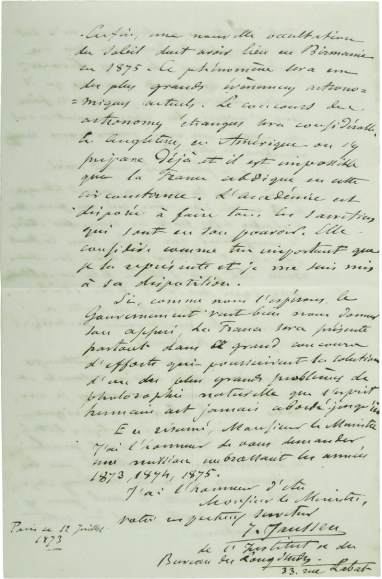 Enfin, une nouvelle occultation
du Soleil doit avoir lieu en Birmanie
en 1875. Ce phénomène sera un
des plus grands évènemens astrono-
=miques actuels. Le concours des
astronomes étrangers sera considérable
en Angleterre, en Amérique on s'y
prépare déjà et il est impossible
que la France abdique en cette
circonstance. L'académie est
disposée à faire tous les sacrifices
qui sont en son pouvoir. Elle
considère comme très important que
je la représente et je me suis mis
à sa disposition.
Si, comme nous l'espérons le
Gouvernement veut bien nous donner
son appui, la France sera présente
partout dans ce grand concours
d'efforts qui poursuivent la solution
d'un des plus grands problèmes de
philosophie naturelle que l'esprit
humain ait jamais abordé jusqu'ici
En résumé, Monsieur le Ministre
j'ai l'honneur de vous demander,
une mission embrassant les années
1873, 1874, 1875.
J'ai l'honneur d'être
Monsieur le Ministre,
votre respectueux serviteur
J. Janssen
de l'Institut et du
Bureau des Longitudes
33, rue Labat
Paris ce 12 juillet
1873